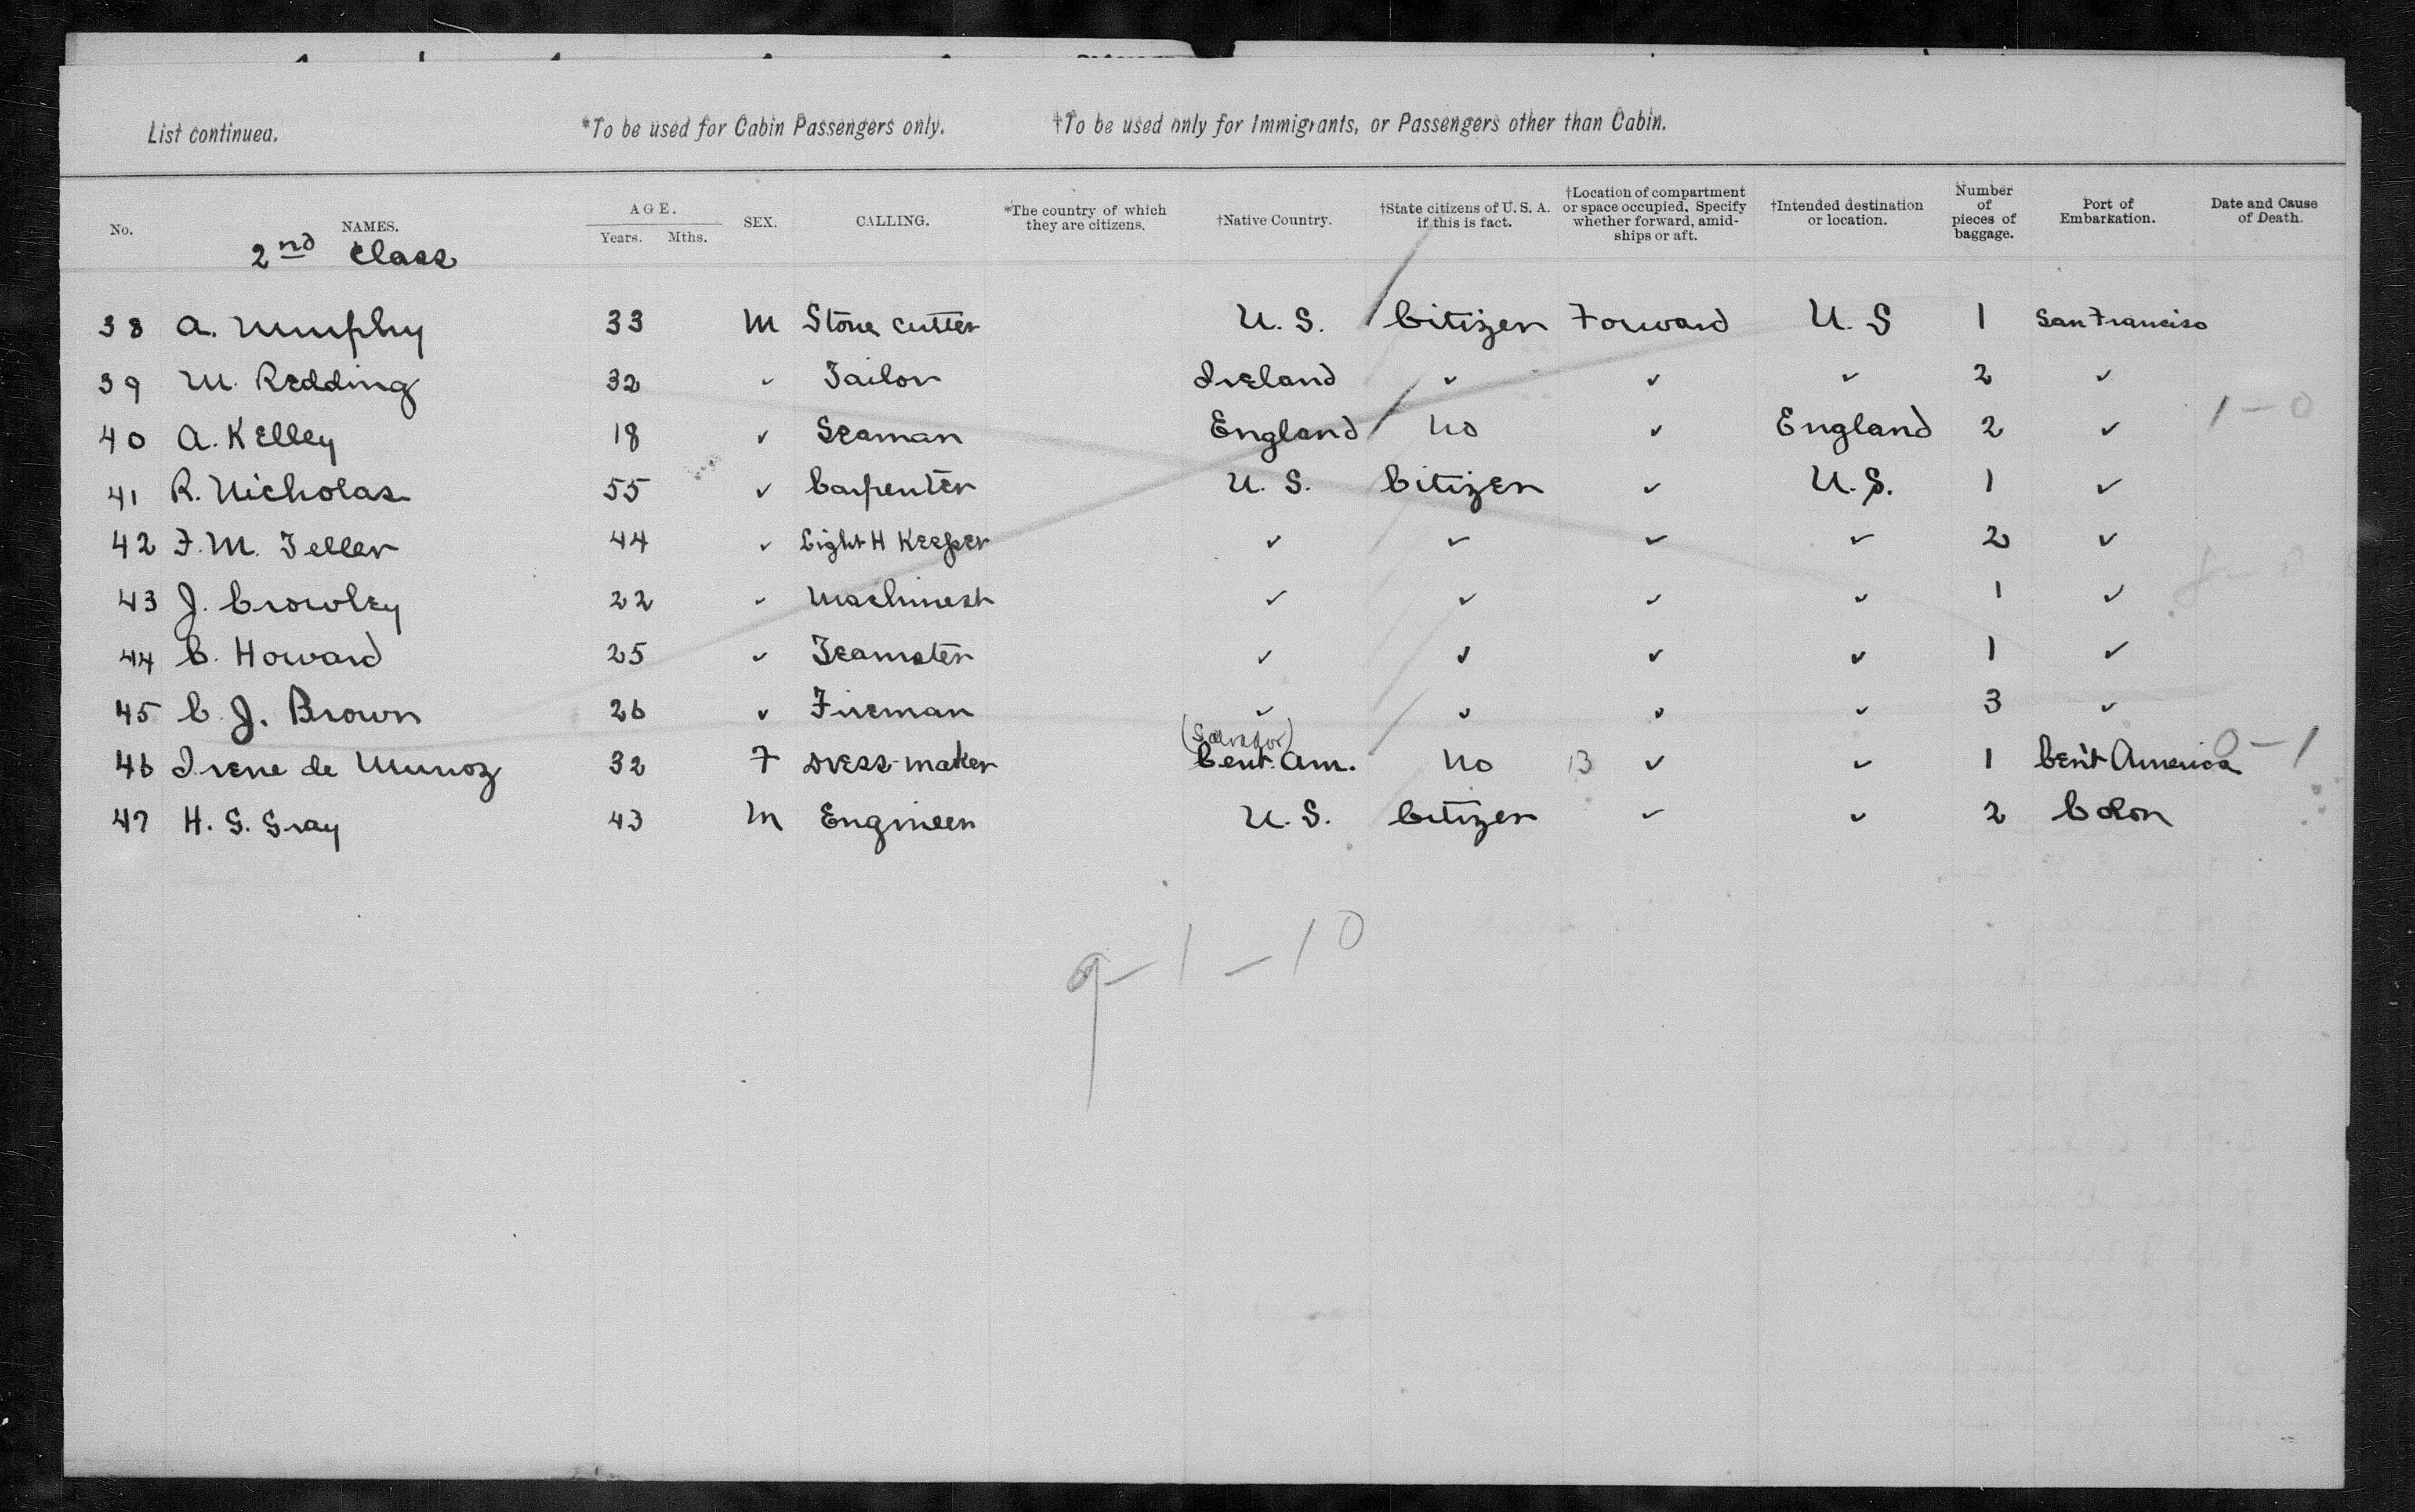 List continued. *To be used for Cabin Passengers only. †To be used only for Immigrants, or Passengers other than Cabin.
No. NAMES. AGE. Years. Mths. SEX. CALLING. *The country of which they are citizens. †Native Country. †State citizens of U. S. A. if this is fact. †Location of compartment or space occupied. Specify whether forward, amidships or aft. †Intended destination or location. Number of pieces of baggage. Port of Embarkation. Date and Cause of Death.
2nd Class
38 A. Murphy 33 M Stone cutter U. S. Citizen Forward U. S 1 San Francisco
39 M. Redding 32 ✓ Tailor Ireland ✓ ✓ ✓ 2 ✓
40 A. Kelley 18 ✓ Seaman England No ✓ England 2 ✓ 1 – 0
41 R. Nicholas 55 ✓ Carpenter U. S. Citizen ✓ U. S. 1 ✓
42 F. M. Teller 44 ✓ Light H Keeper ✓ ✓ ✓ ✓ 2 ✓
43 J. Crowley 22 ✓ Machinest ✓ ✓ ✓ ✓ 1 ✓
44 C. Howard 25 ✓ Teamster ✓ ✓ ✓ ✓ 1 ✓
45 C. J. Brown 26 ✓ Fireman ✓ ✓ ✓ ✓ 3 ✓
(Salvador)
46 Irene de Munoz 32 F Dress-maker Cent. Am. No 13 ✓ ✓ 1 Cen't America 0 – 1
47 H. G. Gray 43 M Engineer U. S. Citizen ✓ ✓ 2 Colon
9 – 1 – 10